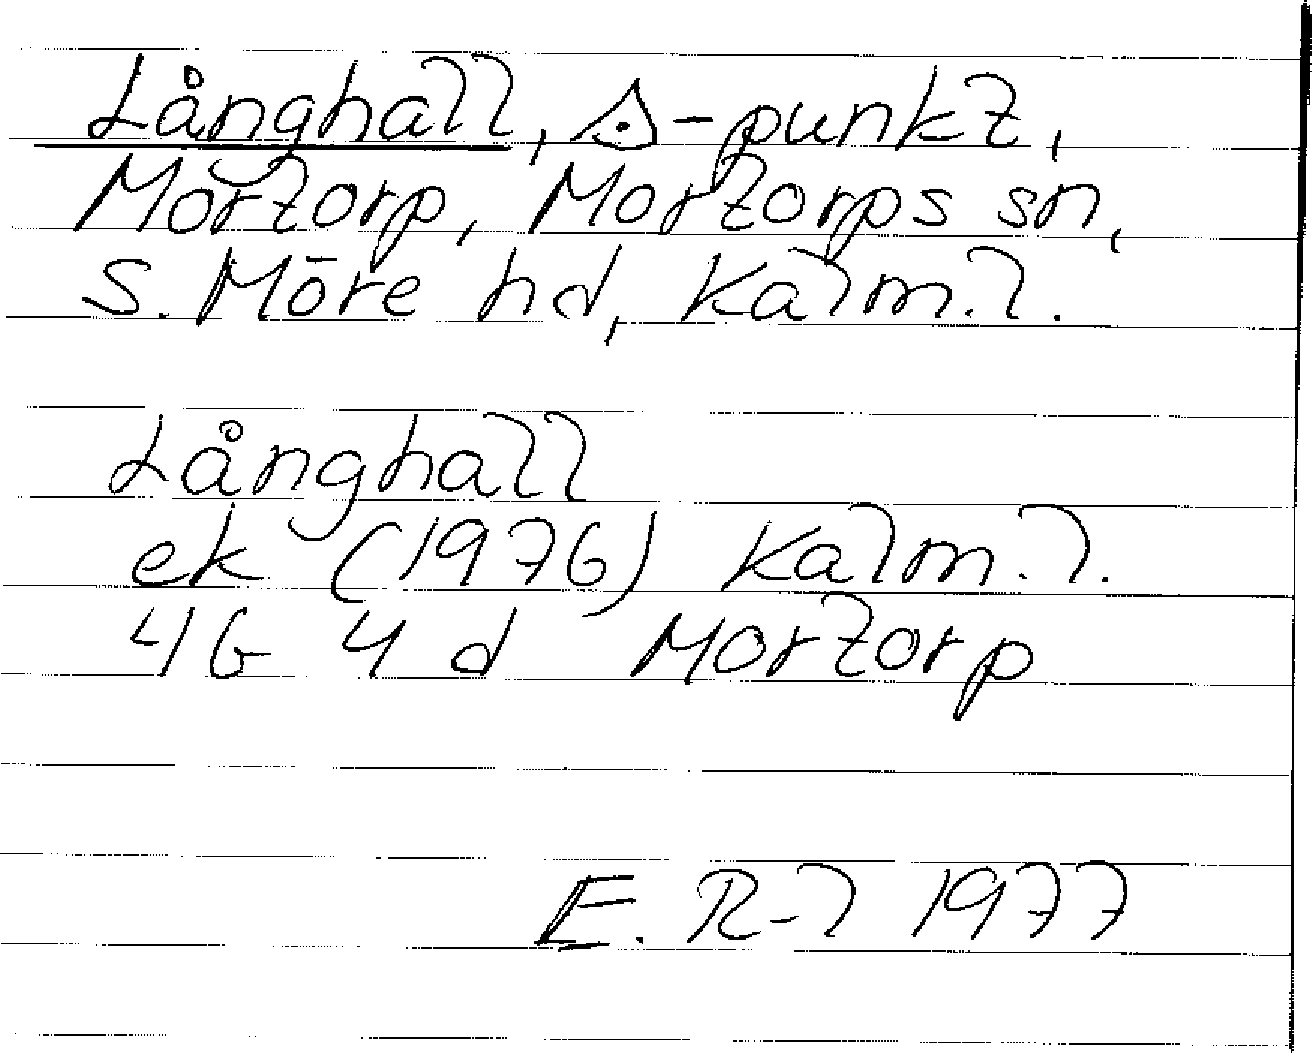 Långhall, △-punkt,
Mortorp, Mortorps sn,
S. Möre hd, Kalm. l.
Långhall
ek (1976) Kalm. l.
4G 4d Mortorp
E. R-l 1977